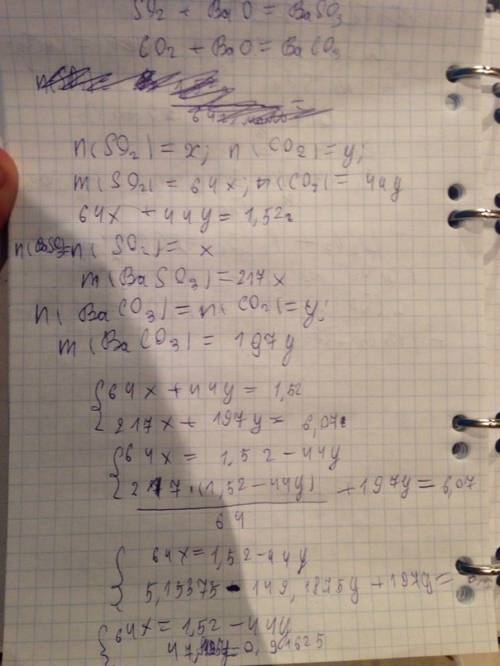 SO2 + BaO = BaSO3
CO2 + BaO = BaCO3
n(SO2) = x; n(CO2) = y;
m(SO2) = 64x; m(CO2) = 44y
64x + 44y = 1,52г
n(BaSO3) = n(SO2) = x
m(BaSO3) = 217x
n(BaCO3) = n(CO2) = y;
m(BaCO3) = 197y
{ 64x + 44y = 1,52
217x + 197y = 6,07
{ 64x = 1,52 - 44y
217 · (1,52 - 44y) / 64 + 197y = 6,07
{ 64x = 1,52 - 44y
5,15375 - 149,1875y + 197y =
{ 64x = 1,52 - 44y